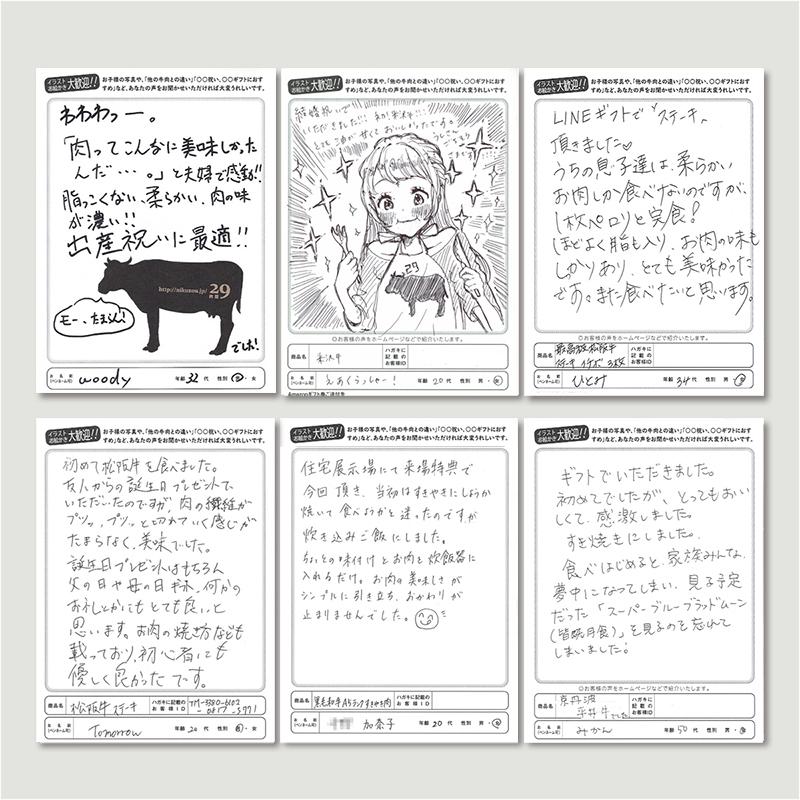 イラスト
お絵かき 大歓迎!!
お子様の写真や、「他の牛肉との違い」「〇〇祝い、〇〇ギフトにおす
すめ」など、あなたの声をお聞かせいただければ大変うれしいです。
わわわっー。
「肉ってこんなに美味しかった
んだ…。」と夫婦で感動!!
脂っこくない、柔らかい、肉の味
が濃い!!
出産祝いに最適!!
http://nikuzou.jp/ 29
肉贈
モー、たまらん!
でした!
お名前
(ペンネーム可) woody 年齢 32 代 性別 男・女
イラスト
お絵かき 大歓迎!!
お子様の写真や、「他の牛肉との違い」「〇〇祝い、〇〇ギフトにおす
すめ」など、あなたの声をお聞かせいただければ大変うれしいです。
結婚祝いで
いただきました!!! 初米沢牛!!!
とても油が甘くておいしかったです。
29
◎お客様の声をホームページなどで紹介いたします。
商品名 米沢牛 ハガキに記載のお客様ID
お名前
(ペンネーム可) えあくらっしゃー! 年齢 20 代 性別 男・女
Amazonギフト券ご送付先
イラスト
お絵かき 大歓迎!!
お子様の写真や、「他の牛肉との違い」「〇〇祝い、〇〇ギフトにおす
すめ」など、あなたの声をお聞かせいただければ大変うれしいです。
LINEギフトで"ステーキ"
頂きました♡
うちの息子達は、柔らかい
お肉しか食べないのですが、
1枚ペロリと完食!
ほどよく脂も入り、お肉の味も
しっかりあり、とても美味かった
です。また食べたいと思います。
◎お客様の声をホームページなどで紹介いたします。
商品名 最高級松阪牛
ステーキ イチボ 3枚 ハガキに記載のお客様ID
お名前
(ペンネーム可) ひとみ 年齢 34 代 性別 男・女
イラスト
お絵かき 大歓迎!!
お子様の写真や、「他の牛肉との違い」「〇〇祝い、〇〇ギフトにおす
すめ」など、あなたの声をお聞かせいただければ大変うれしいです。
初めて松阪牛を食べました。
友人からの誕生日プレゼントで
いただいたのですが、肉の繊維が
プツッ、プツッと切れていく感じが
たまらなく、美味でした。
誕生日プレゼントはもちろん
父の日や母の日ギフト、何かの
お礼とかにもとても良いと
思います。お肉の焼き方なども
載っており、初心者にも
優しく良かったです。
◎お客様の声をホームページなどで紹介いたします。
商品名 松阪牛ステーキ ハガキに記載のお客様ID
お名前
(ペンネーム可) Tomorrow 年齢 20 代 性別 男・女
イラスト
お絵かき 大歓迎!!
お子様の写真や、「他の牛肉との違い」「〇〇祝い、〇〇ギフトにおす
すめ」など、あなたの声をお聞かせいただければ大変うれしいです。
住宅展示場にて来場特典で
今回頂き、当初はすきやきにしようか
焼いて食べようかと迷ったのですが
炊き込みご飯にしました。
ちょっとの味付けとお肉を炊飯器に
入れるだけ。お肉の美味しさが
シンプルに引き立ち、おかわりが
止まりませんでした。
◎お客様の声をホームページなどで紹介いたします。
商品名 黒毛和牛A5ランクすきやき肉 ハガキに記載のお客様ID
お名前
(ペンネーム可) 加奈子 年齢 20 代 性別 男・女
イラスト
お絵かき 大歓迎!!
お子様の写真や、「他の牛肉との違い」「〇〇祝い、〇〇ギフトにおす
すめ」など、あなたの声をお聞かせいただければ大変うれしいです。
ギフトでいただきました。
初めてでしたが、とってもおい
しくて、感激しました。
すき焼きにしました。
食べはじめると、家族みんな、
夢中になってしまい、見る予定
だった「スーパーブルーブラッドムーン
(皆既月食)」を見るのを忘れて
しまいました!
◎お客様の声をホームページなどで紹介いたします。
商品名 京丹波
平井牛でした ハガキに記載のお客様ID
お名前
(ペンネーム可) みかん 年齢 50 代 性別 男・女